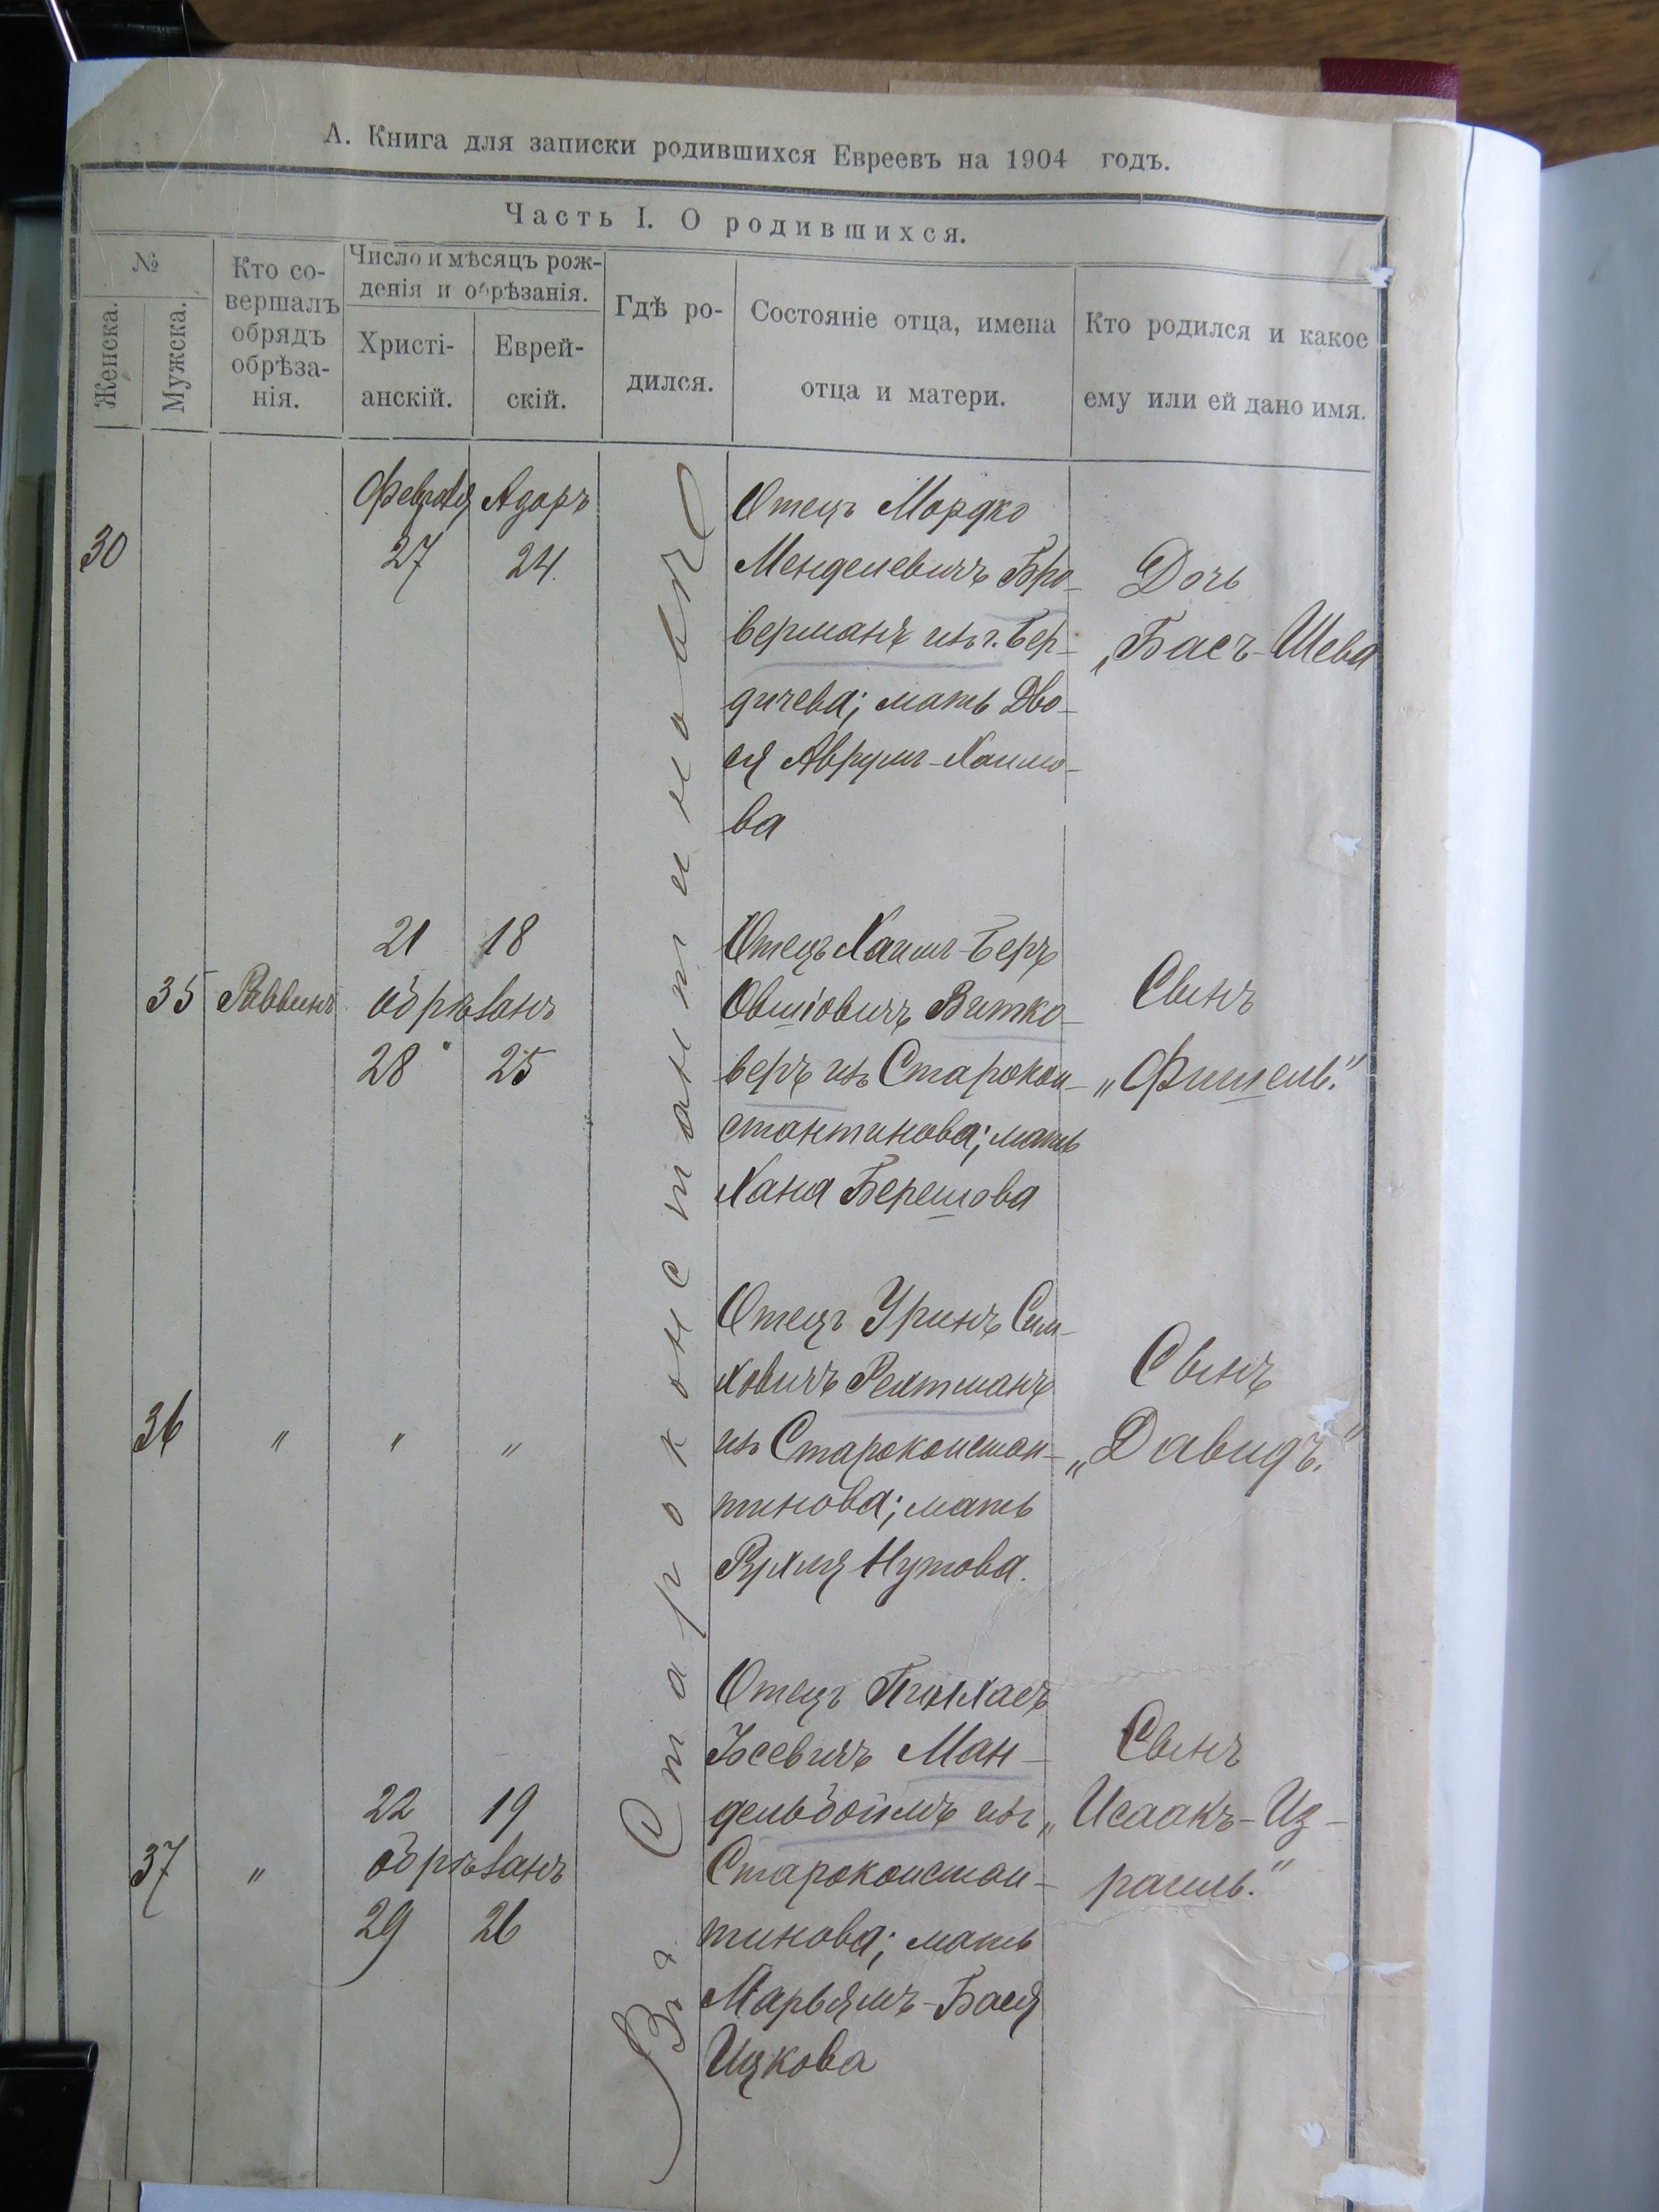 А. Книга для записки родившихся Евреевъ на 1904 годъ.
Часть I. О родившихся.
№
Женска.
Мужска.
Кто со-
вершалъ
обрядъ
обрѣза-
нія.
Число и мѣсяцъ рож-
денія и обрѣзанія.
Христі-
анскій.
Еврей-
скій.
Гдѣ ро-
дился.
Состояніе отца, имена
отца и матери.
Кто родился и какое
ему или ей дано имя.
Въ Староконстантиновѣ
30
Февраля Адаръ
27 24
Отецъ Мордко
Менделевичъ Бро-
верманъ изъ г. Бер-
дичева; мать Дво-
ся Аврумъ-Хаимо-
ва
Дочь
„Бась-Шева
35 Раввинъ
21 18
обрѣзанъ
28 25
Отецъ Хаимъ-Беръ
Овшіовичъ Витко-
веръ изъ Старокон-
стантинова; мать
Хана Берешова
Сынъ
„Фишель."
36 " " "
Отецъ Уринъ Сим-
ховичъ Рехтманъ
изъ Староконстан-
тинова; мать
Рухля Нутова.
Сынъ
„Давидъ."
37 "
22 19
обрѣзанъ
29 26
Отецъ Пинхасъ
Іосевичъ Ман-
дельбоймъ изъ
Староконстан-
тинова; мать
Марьямъ-Бася
Ицкова
Сынъ
„Исаакъ-Из-
раиль."